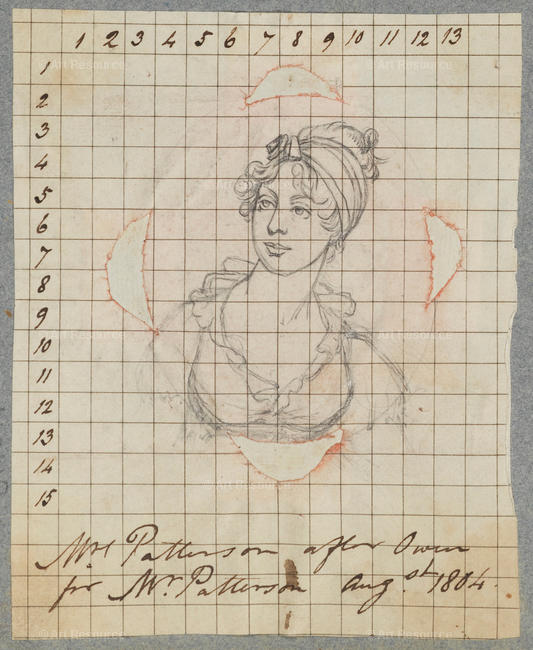 1 2 3 4 5 6 7 8 9 10 11 12 13
1
2
3
4
5
6
7
8
9
10
11
12
13
14
15
Mrs Patterson after Owen
for Mr. Patterson Aug.st 1804.
© Art Resource